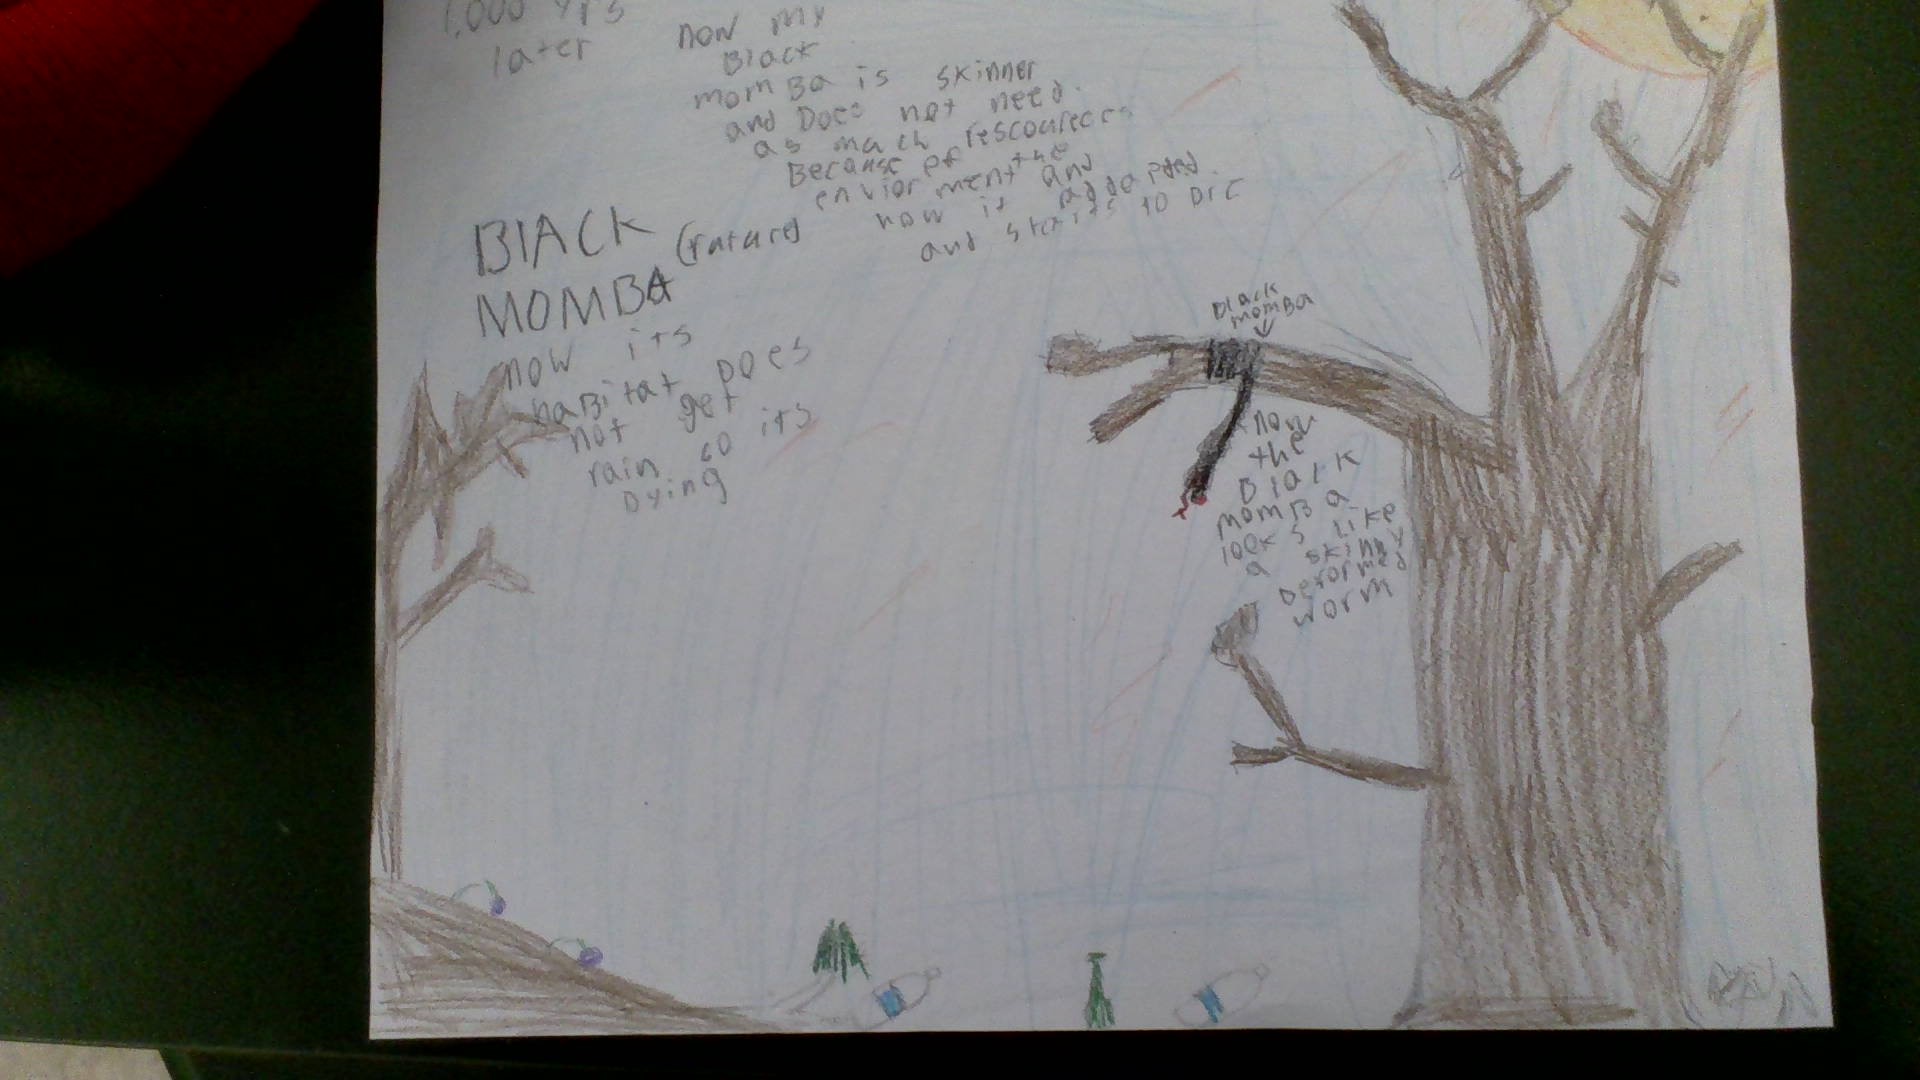 1,000 yrs
later
now my
Black
momBa is skinner
and Does not need.
as much rescources
Because of the
enviorment and
now it addapted.
and starts to DIE
BlACK
MOMBA (future)
now its
haBitat Does
not get
rain so its
Dying
Black
momBa
now
the
Black
momBa
looks like
a skinny
Deformed
worm